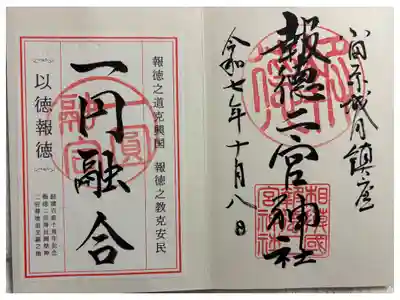 小田原城内鎮座
報徳二宮神社
令和七年十月八日
報徳之道克興国 報徳之教克安民
一円融合
一圓融合
以徳報徳